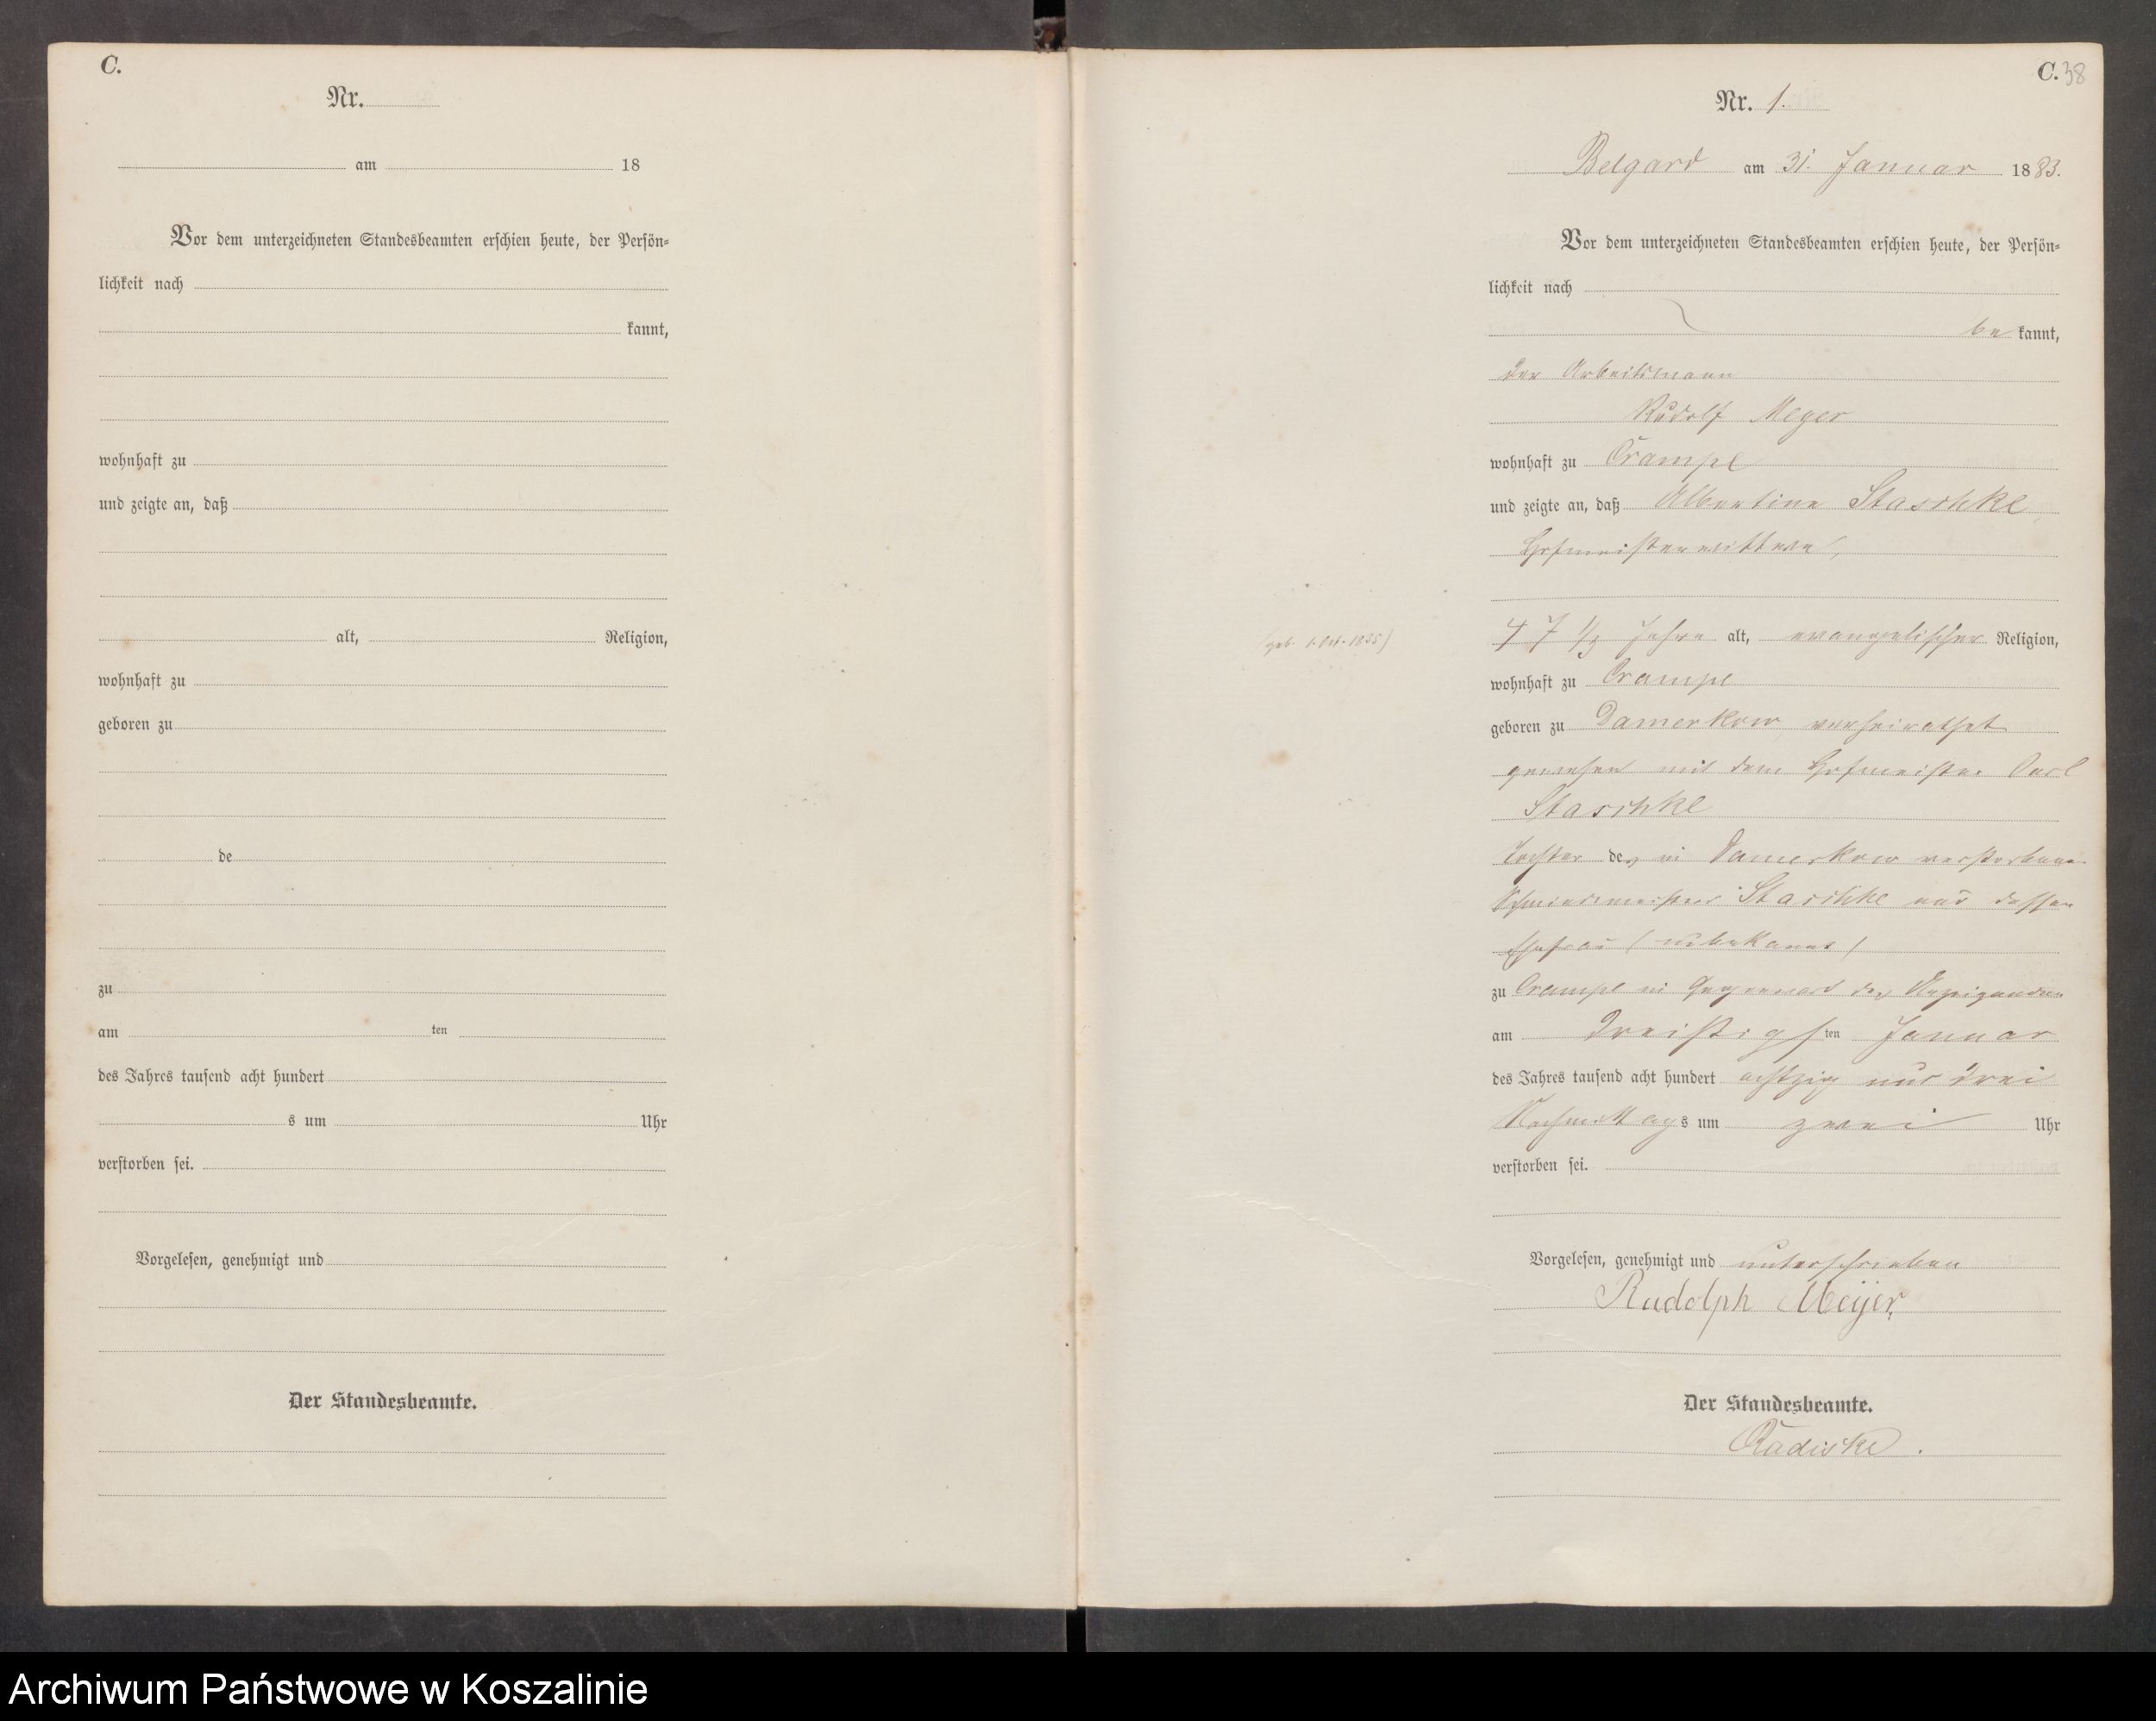 C.
Nr.
am 18
Vor dem unterzeichneten Standesbeamten erschien heute, der Persön-
lichkeit nach
kannt,
wohnhaft zu
und zeigte an, daß
alt, Religion,
wohnhaft zu
geboren zu
de
zu
am ten
des Jahres tausend acht hundert
s um Uhr
verstorben sei.
Vorgelesen, genehmigt und
Der Standesbeamte.
C. 38
Nr. 1.
Belgard am 31. Januar 1883.
Vor dem unterzeichneten Standesbeamten erschien heute, der Persön-
lichkeit nach
bekannt,
der Arbeitsmann
Rudolf Meyer
wohnhaft zu Crampe
und zeigte an, daß Albertine Staschke,
Hofmeisterwittwe,
(geb. 1. Oct. 1835)
47 1/3 Jahre alt, evangelischer Religion,
wohnhaft zu Crampe
geboren zu Damerkow, verheirathet
gewesen mit dem Hofmeister Carl
Staschke
Tochter des in Damerkow verstorbenen
Schmiedemeister Staschke und dessen
Ehefrau (unbekannt)
zu Crampe in Gegenwart des Anzeigenden
am dreißigsten Januar
des Jahres tausend acht hundert achtzig und drei
Nachmittags um zwei Uhr
verstorben sei.
Vorgelesen, genehmigt und unterschrieben
Rudolph Meijer
Der Standesbeamte.
Radiske.
Archiwum Państwowe w Koszalinie